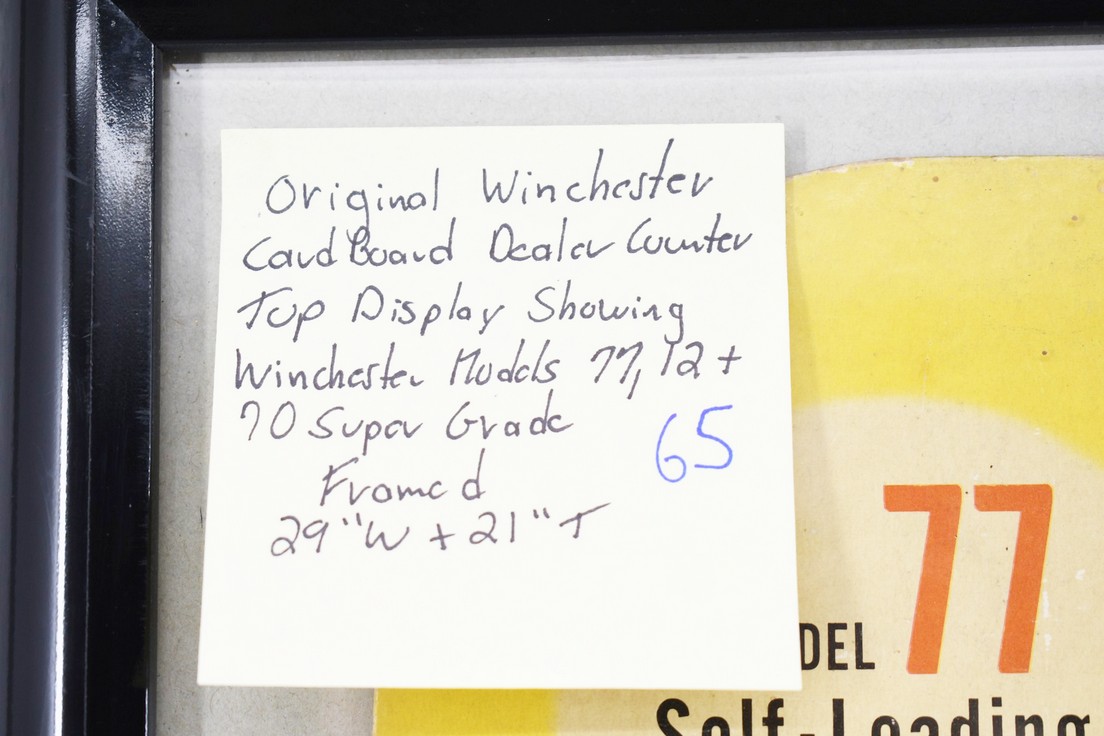 Original Winchester
CardBoard Dealer Counter
Top Display Showing
Winchester Models 77, 12 +
70 Super Grade
65
Framed
29"W + 21"T
77
DEL
Self-Loading